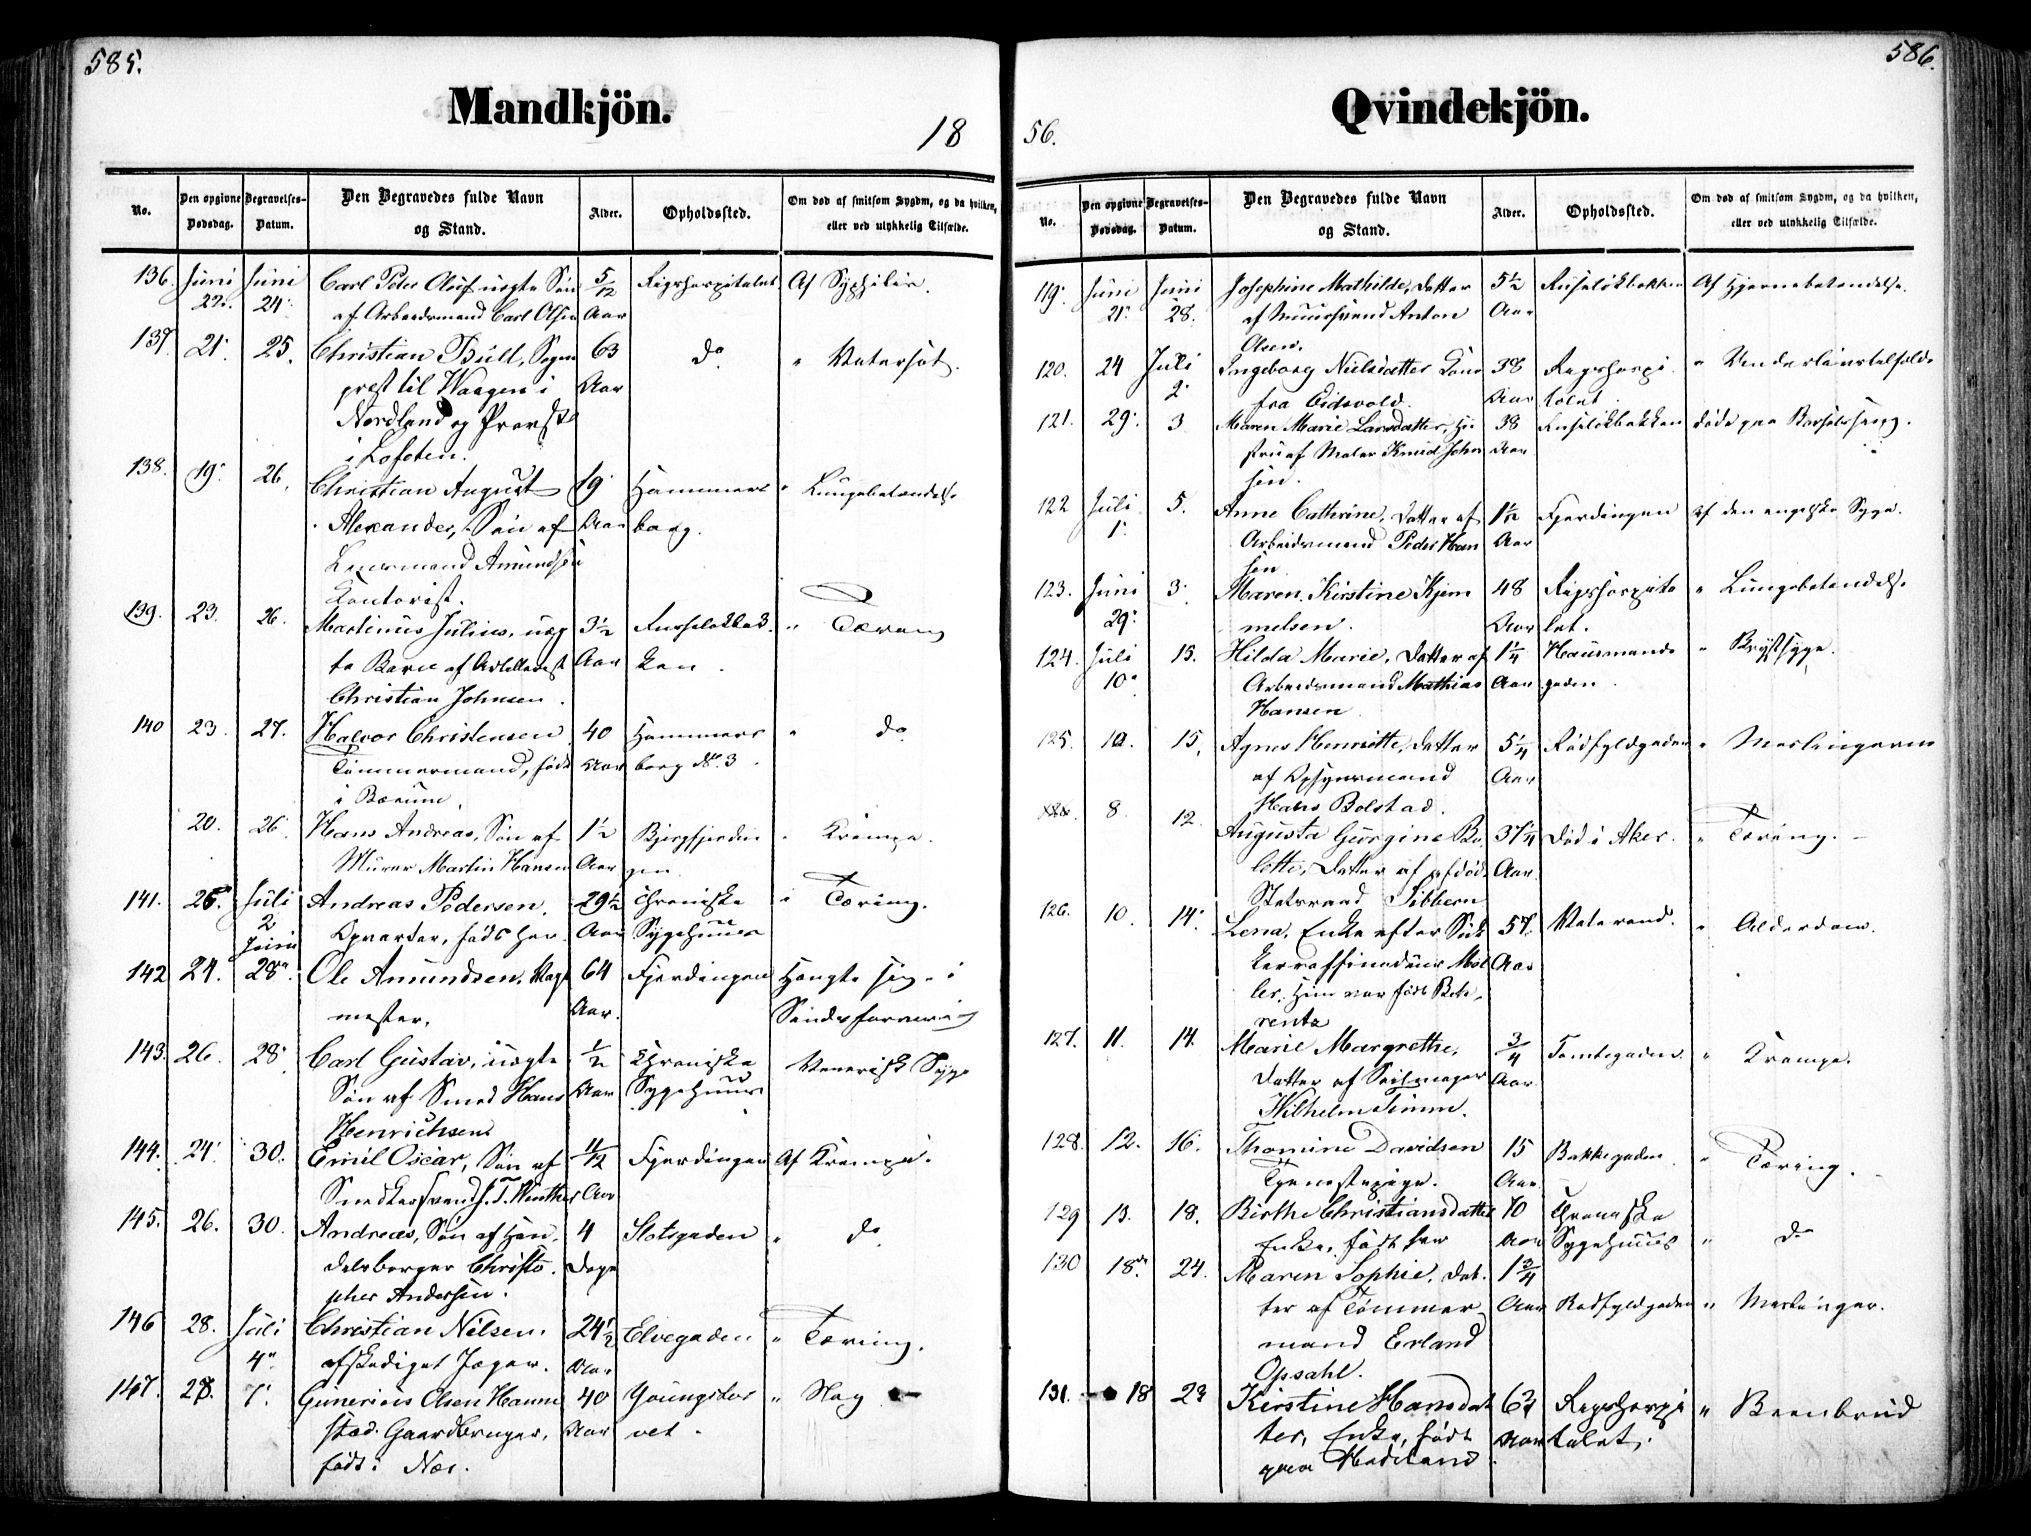 585.
Mandkjön.
18
No.
Den opgivne Dødsdag.
Begravelses-Datum.
Den Begravedes fulde Navn og Stand.
Alder.
Opholdssted.
Om død af smitsom Sygdm, og da hvilken, eller ved ulykkelig Tilfælde.
136. Juni Juni Carl Peder Oluf uegte Søn 5/12 Rigshospitalet Af Syphilis.
22. 24. af Arbeidsmand Carl Olsen Aar
137. 21. 25. Christian Bull, Sogne 63 do " Vatersot.
prest til Waagen i Aar
Nordland og Provst
i Lofoten.
138. 19. 26. Christian August 19 Hammers " Lungebetændelse
Alexander, Søn af Aar borg.
Lensmand Amundsen
Kontorist.
139. 23. 26. Martinus Julius, uæg 3½ Russeløkbak " Tæring
te Barn af Aar ken.
Christian Johnsen.
140 23. 27. Halvor Christensen 40 Hammers " do
Tømmermand, født Aar borg No. 3.
i Bærum.
20. 26. Hans Andreas, Søn af 1½ " Krampe.
Murer Martin Hansen Aar
141. 25. Juli Andreas Pedersen. 29½ Chroniske " Tæring.
2 Opvarter, født her. Aar Sygehuus
Juni
142 24. 28. Ole Amundsen, 64 Fjerdingen Hængte sig i
mester. Aar. Sindsforvirring
143. 26. 28. Carl Gustav, uægte ½ Chroniske Venerisk Syge
Søn af Smed Hans Aar Sygehuus
Henrichsen
144. 24. 30. Emil Oscar, Søn af 11/12 Fjerdingen Af Krampe.
Snedkersvend J. T. Winther Aar
145. 26. 30. Andreas, Søn af Han 4 Slotsgaden " do
delsborger Christo Dage
pher Andersen.
146 28. Juli Christian Nilsen. 24½ Elvegaden " Tæring.
4. afskediget Jæger. Aar
147. 28. 7. Gunerius Olsen Hanne 40 Youngstor " Slag
stad. Gaardbruger, Aar vet.
født: Næs.
586.
Qvindekjön.
56.
No.
Den opgivne Dødsdag.
Begravelses-Datum.
Den Begravedes fulde Navn og Stand.
Alder.
Opholdssted.
Om død af smitsom Sygdm, og da hvilken, eller ved ulykkelig Tilfælde.
119. Juni Juni Josephine Mathilde, Datter 5½ Ruseløkbakken Af Hjernebetændelse.
21. 28. af Muursvend Anton Aar
Olsen.
120. 24 Juli Ingeborg Nielsdatter 38 Rigshospi "
2. fra Eidsvold. Aar talet.
121. 29. 3 Maren Marie Larsdatter, Hu 38 Ruseløkbakken døde paa Barselseng.
stru af Maler Knud John Aar
sen.
122 Juli 5. Anne Cathrine, Datter af 1½ Fjerdingen af den engelske Syge.
1. Arbeidsmand Peder Han Aar
sen
123. Juni 3. Maren Kirstine Kjem 48 Rigshospita " Lungebetændelse
29. melsen. Aar let.
124. Juli 15. Hilda Marie, Datter af 1¼ Hausmands " Brystsyge.
10. Arbeidsmand Mathias Aar gaden.
Hansen
125. 10. 15. Agnes Henriette, Datter 5¼ Rødfyldgaden " Meslingerne
af Opsynsmand Aar
Hans Bolstad.
8. 12. Augusta Gurgine Bo 37¼ Død i Aker. " Tæring.
lette, Datter af afdød Aar
Statsraad Sibbern
126. 10. 14. Lena, Enke efter Suk 57. Vaterland. " Alderdom.
kerraffinadeur Møl Aar
ler. Hun var født
127. 11. 14. Marie Margrethe, ¾ Tomtegaden " Krampe.
Datter af Seilmager Aar
Wilhelm Simm.
128. 12. 16. Thomine Davidsen 15 Bakkegaden " Tæring.
Tjenestepige. Aar.
129 13. 18. Birthe Christiansdatter 70 Chroniske
Enke, født her Aar Sygehuus " do
130 18. 24. Maren Sophie, Dat 1¾
ter af Tømmer Aar Rødfyldgaden " Meslinger.
mand Erland
Opsahl.
131. 18 23 Kirstine Hansdat 63 Rigshospi " Beenbrud
ter, Enke, født Aar talet.
paa Hadeland